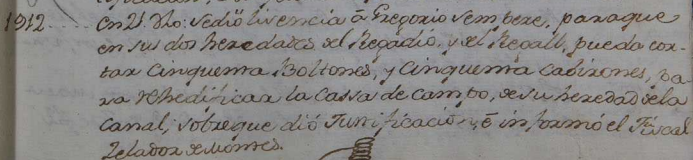 1912.... en 21 Dho: se dió livencia â Gregorio Sempere, para que
en sus dos heredades del Regadio, y del Regall, pueda cor-
tar Cinquenta Boltones, y Cinquenta Cabirones, pa-
ra rehedificar la Cassa de campo, de su heredad de la
Canal; sobre que dió Justificacion, é informó el Fiscal
Zelador de Montes.